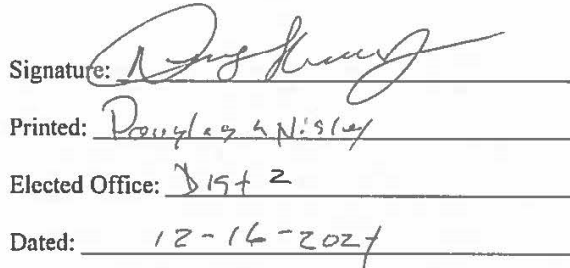 Signature:
Printed: Douglas Nisley
Elected Office: Dist 2
Dated: 12-16-202